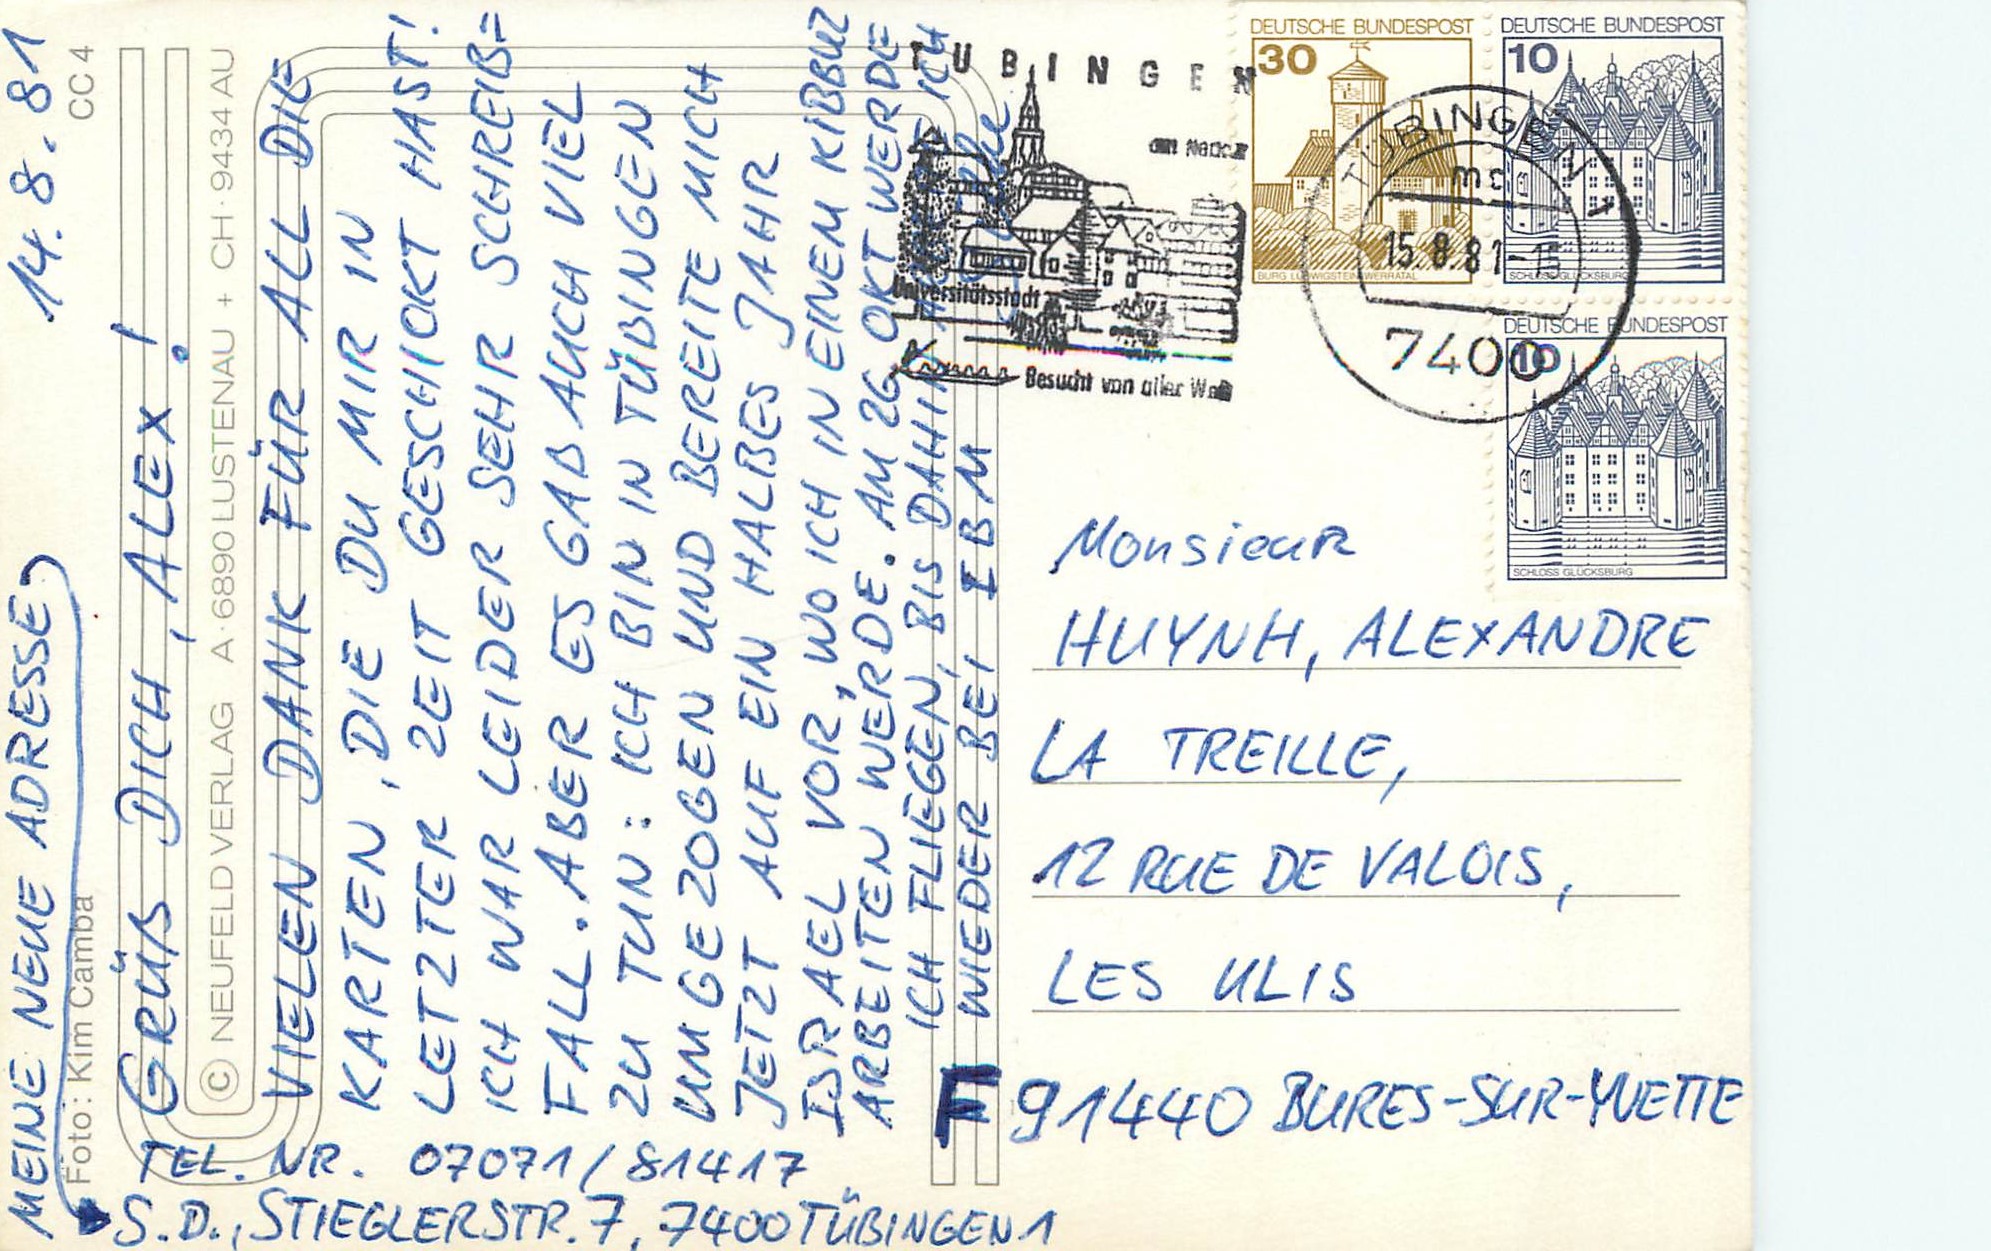 14.8.81
CC 4
Foto: Kim Camba
MEINE NEUE ADRESSE
GRÜß DICH, ALEX!
© NEUFELD VERLAG A·6890 LUSTENAU + CH·9434 AU
VIELEN DANK FÜR ALL DIE
KARTEN, DIE DU MIR IN
LETZTER ZEIT GESCHICKT HAST!
ICH WAR LEIDER SEHR SCHREIB=
FALL. ABER ES GAB AUCH VIEL
ZU TUN: ICH BIN IN TÜBINGEN
UMGEZOGEN UND BEREITE MICH
JETZT AUF EIN HALBES JAHR
ISRAEL VOR, WO ICH IN EINEM KIBBUZ
ARBEITEN WERDE. AM 26 OKT WERDE
ICH FLIEGEN, BIS DAHIN ICH
WIEDER BEI IBM
TEL. NR. 07071/81417
S.D., STIEGLERSTR. 7, 7400 TÜBINGEN 1
TÜBINGEN
am Neckar
Universitätsstadt
Besucht von aller Welt
DEUTSCHE BUNDESPOST
30
BURG LUDWIGSTEIN WERRATAL
DEUTSCHE BUNDESPOST
10
SCHLOSS GLÜCKSBURG
DEUTSCHE BUNDESPOST
10
SCHLOSS GLÜCKSBURG
TÜBINGEN 1
mc
15.8.81-15
7400
Monsieur
HUYNH, ALEXANDRE
LA TREILLE,
12 RUE DE VALOIS,
LES ULIS
F 91440 BURES-SUR-YVETTE